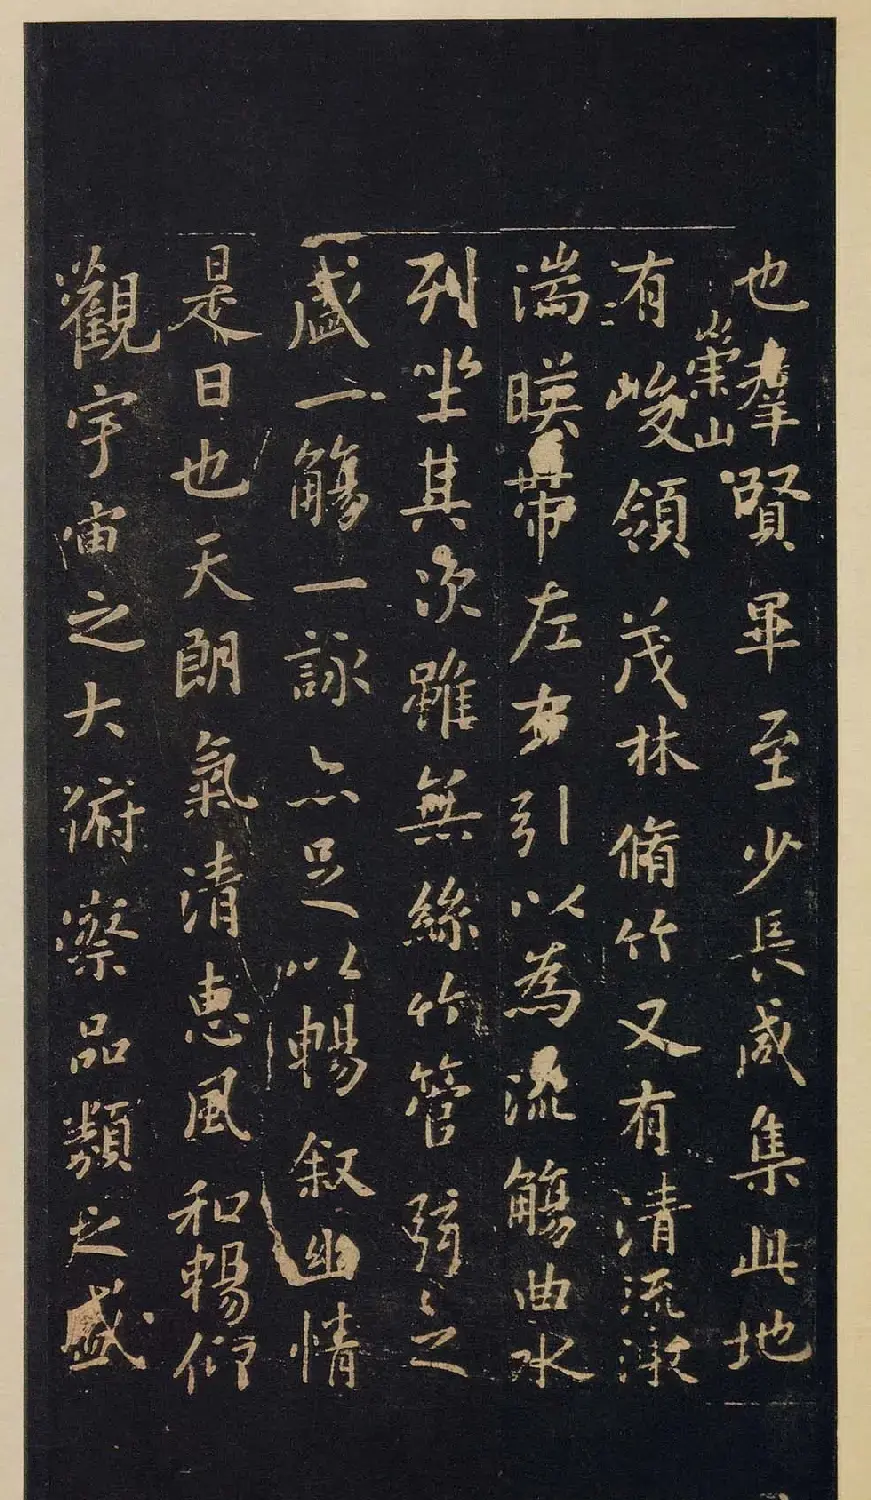 也羣賢畢至少長咸集此地
崇山
有峻領茂林脩竹又有清流激
湍暎帶左右引以為流觴曲水
列坐其次雖無絲竹管弦之
盛一觴一詠亦足以暢叙幽情
是日也天朗氣清惠風和暢仰
觀宇宙之大俯察品類之盛